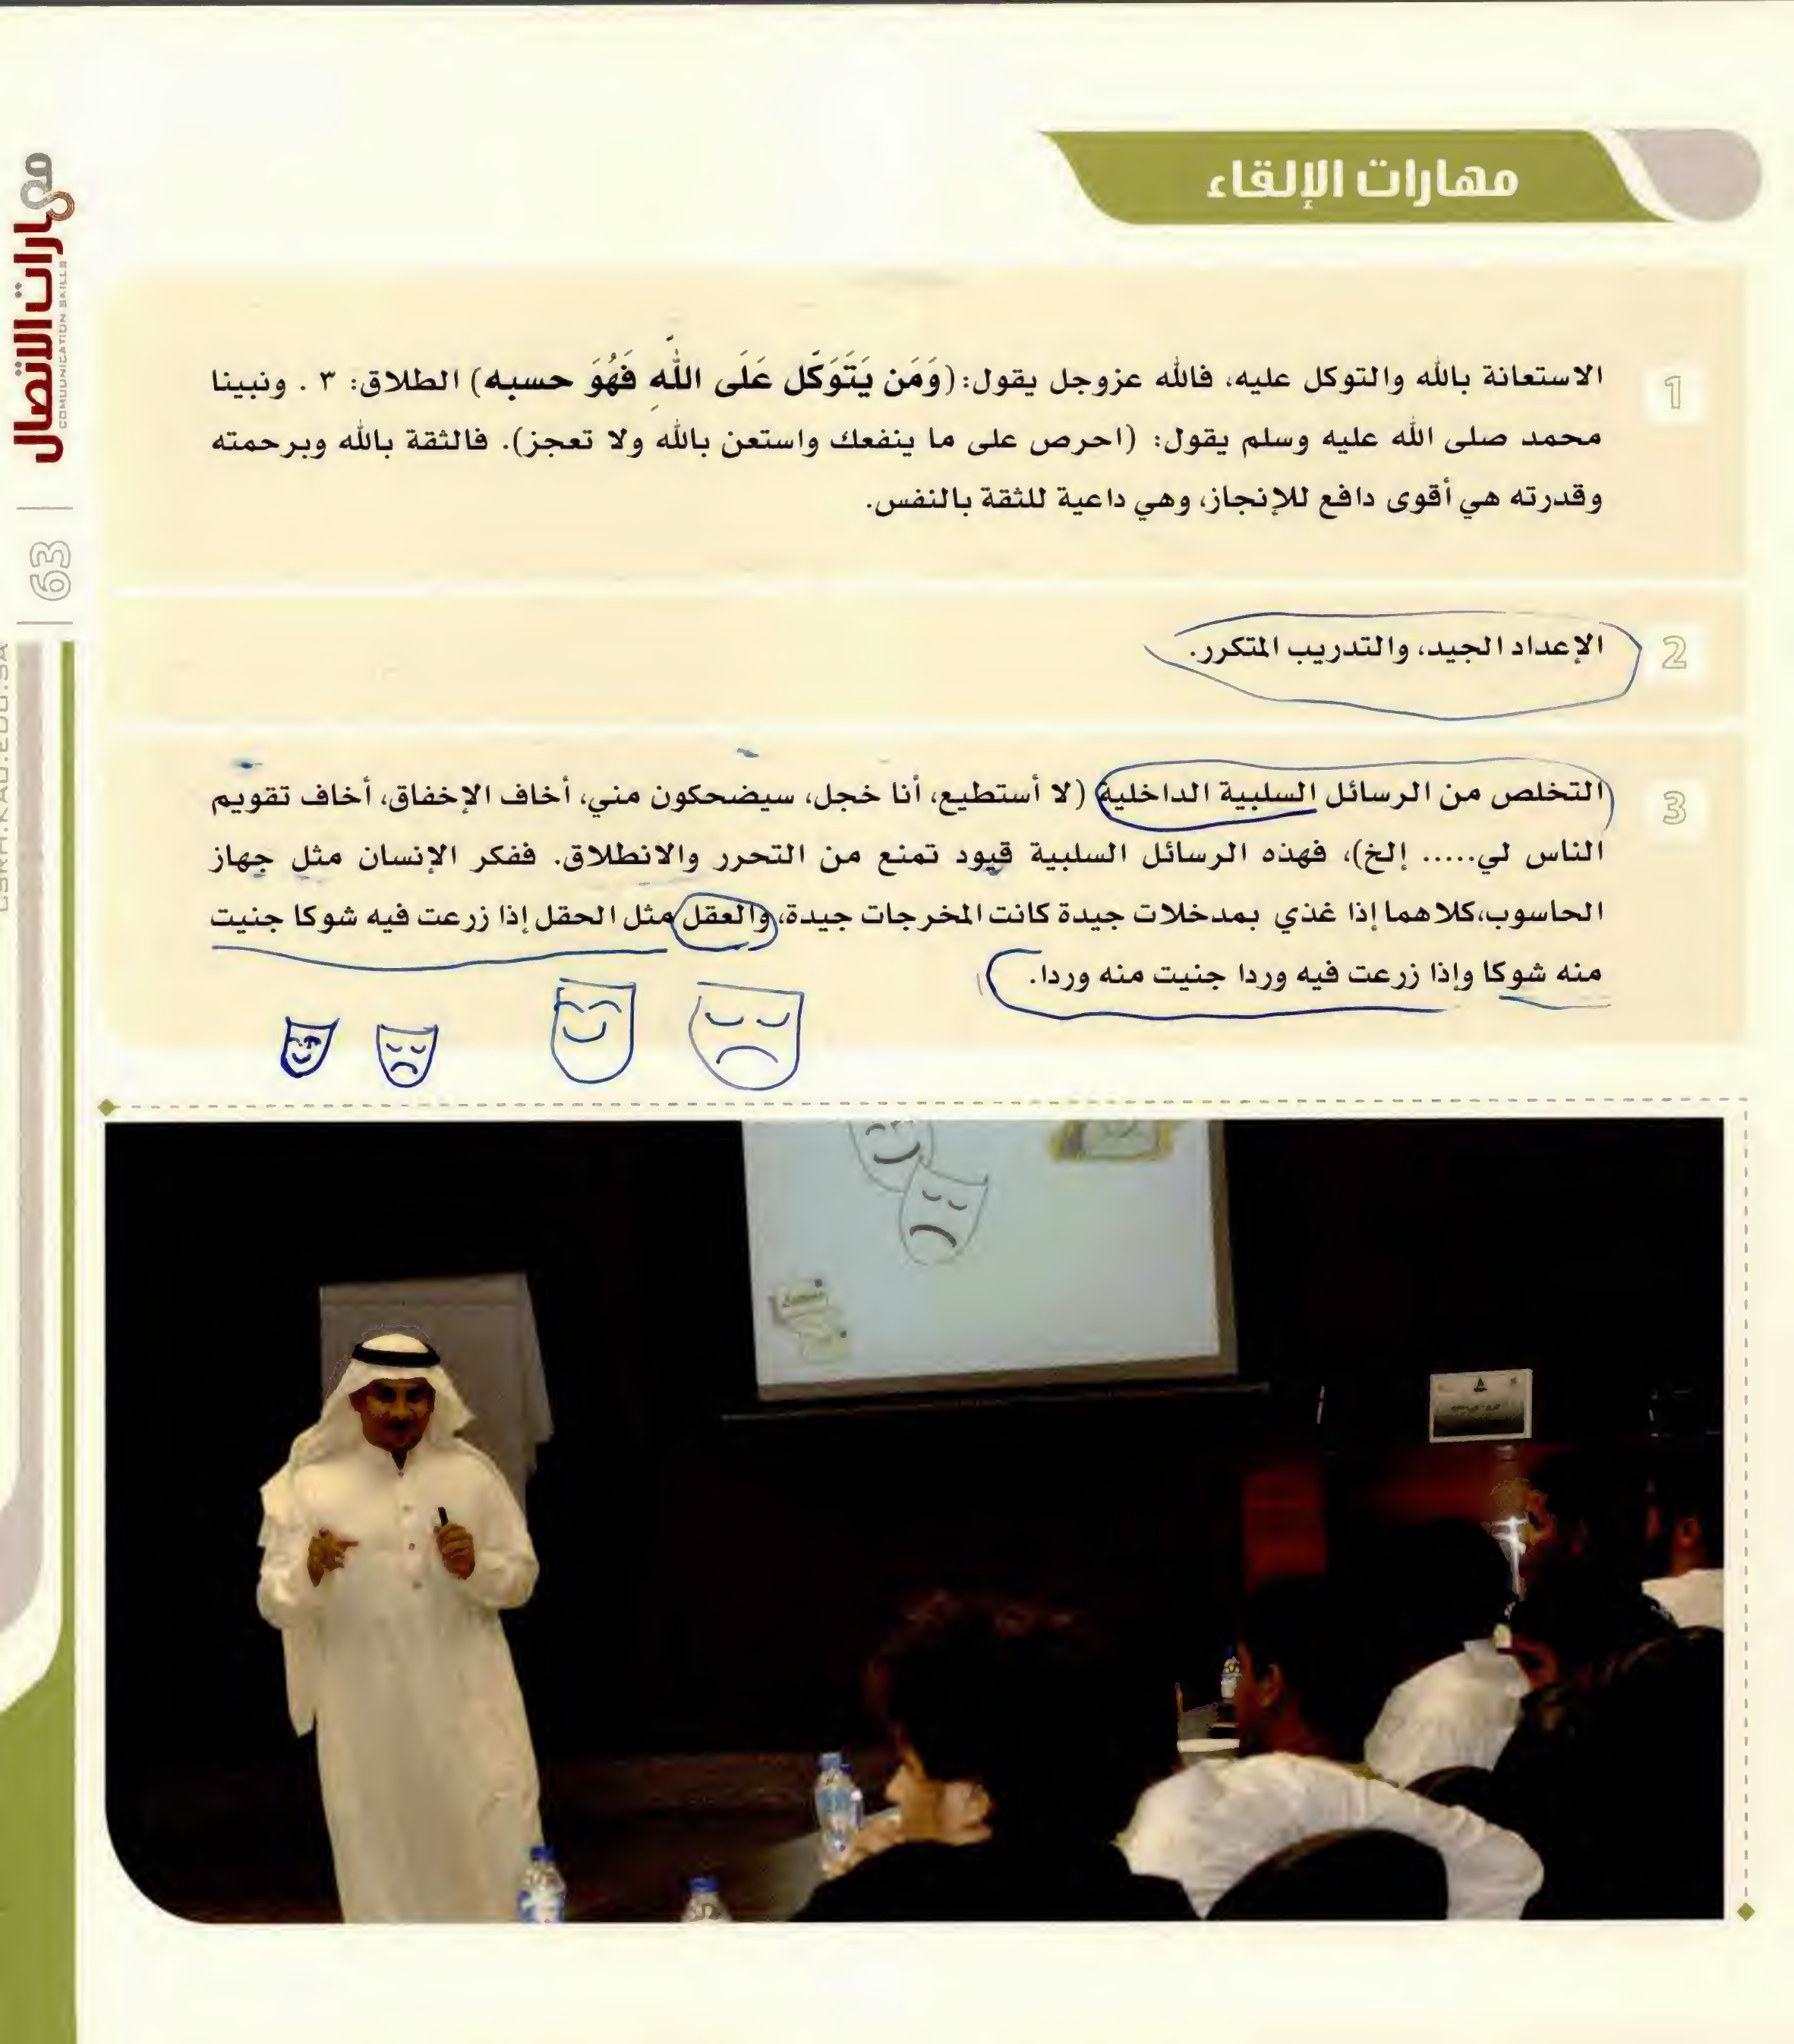 مهارات الإلقاء
1
الاستعانة بالله والتوكل عليه، فالله عزوجل يقول: (وَمَن يَتَوَكَّل عَلَى اللَّهِ فَهُوَ حسبه) الطلاق: ٣ . ونبينا
محمد صلى الله عليه وسلم يقول: (احرص على ما ينفعك واستعن بالله ولا تعجز). فالثقة بالله وبرحمته
وقدرته هي أقوى دافع للإنجاز، وهي داعية للثقة بالنفس.
2
الإعداد الجيد، والتدريب المتكرر.
3
التخلص من الرسائل السلبية الداخلية (لا أستطيع، أنا خجل، سيضحكون مني، أخاف الإخفاق، أخاف تقويم
الناس لي..... إلخ)، فهذه الرسائل السلبية قيود تمنع من التحرر والانطلاق. ففكر الإنسان مثل جهاز
الحاسوب،كلاهما إذا غذي بمدخلات جيدة كانت المخرجات جيدة، والعقل مثل الحقل إذا زرعت فيه شوكا جنيت
منه شوكا وإذا زرعت فيه وردا جنيت منه وردا.
مهارات الاتصال
COMUUNICATION SKILLS
63